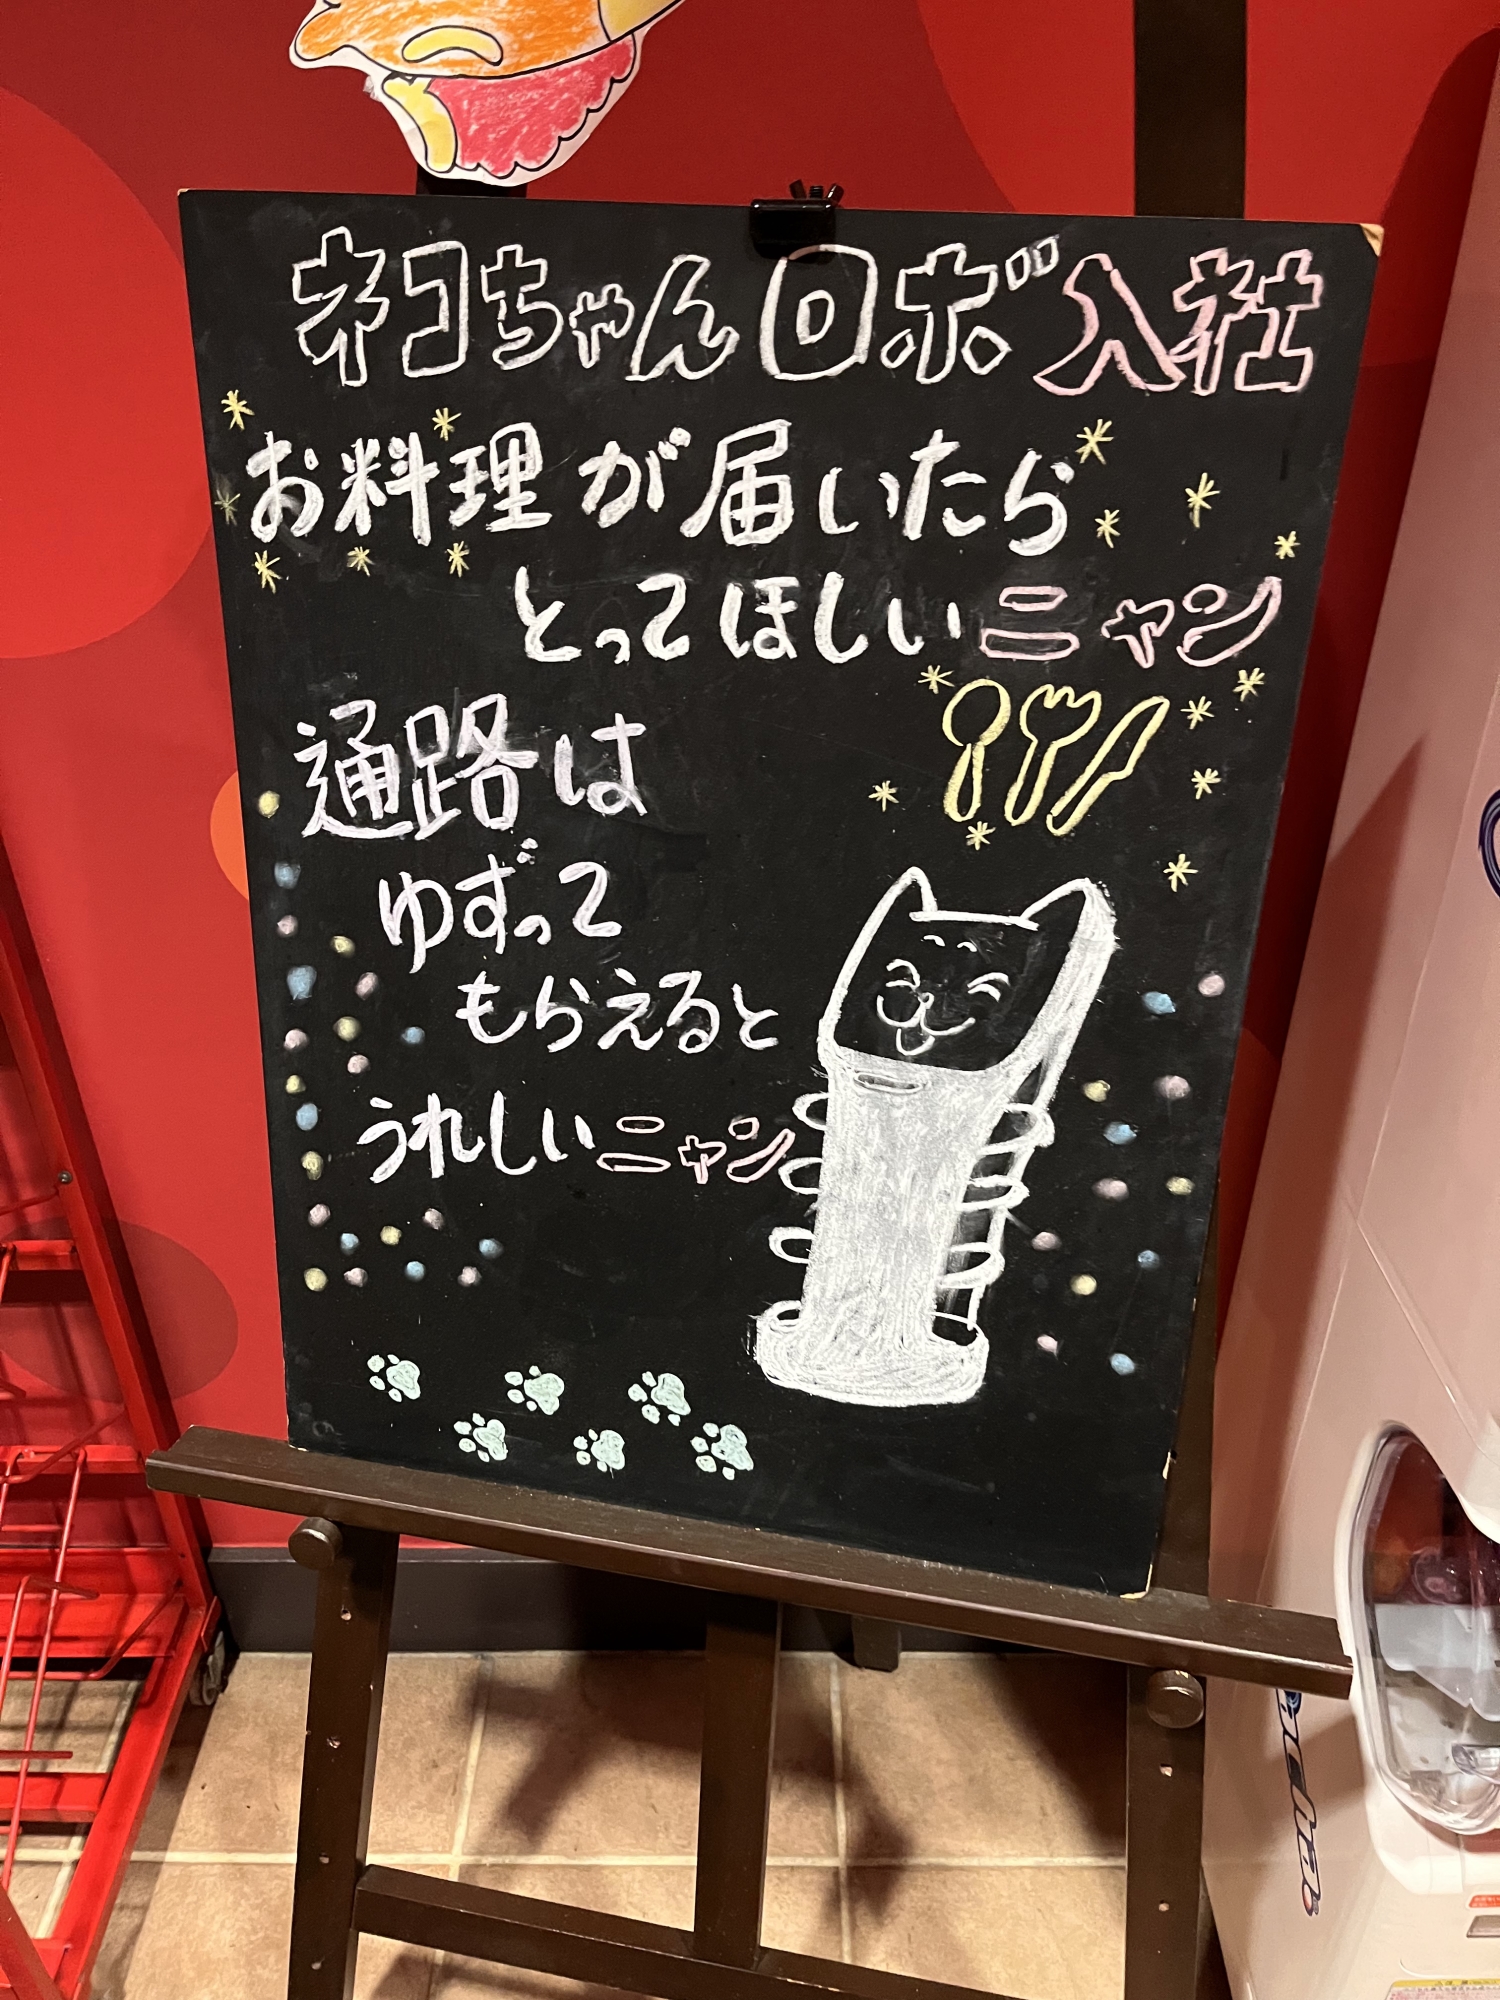 ネコちゃんロボ入社
お料理が届いたら
とってほしいニャン
通路は
ゆずって
もらえると
うれしいニャン